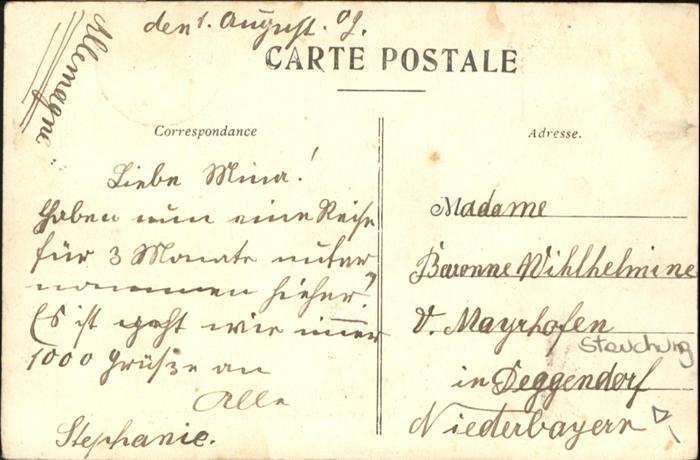 den 1. August. 09.
CARTE POSTALE
Allemagne
Correspondance
Liebe Mina!
Haben nun eine Reise
für 3 Monate unter
nommen hieher!
Es ist wie immer
1000 Grüße an
Alle
Stephanie.
Adresse.
Madame
Baronne Wihlhelmine
V. Mayrhofen
in Deggendorf
Niederbayern